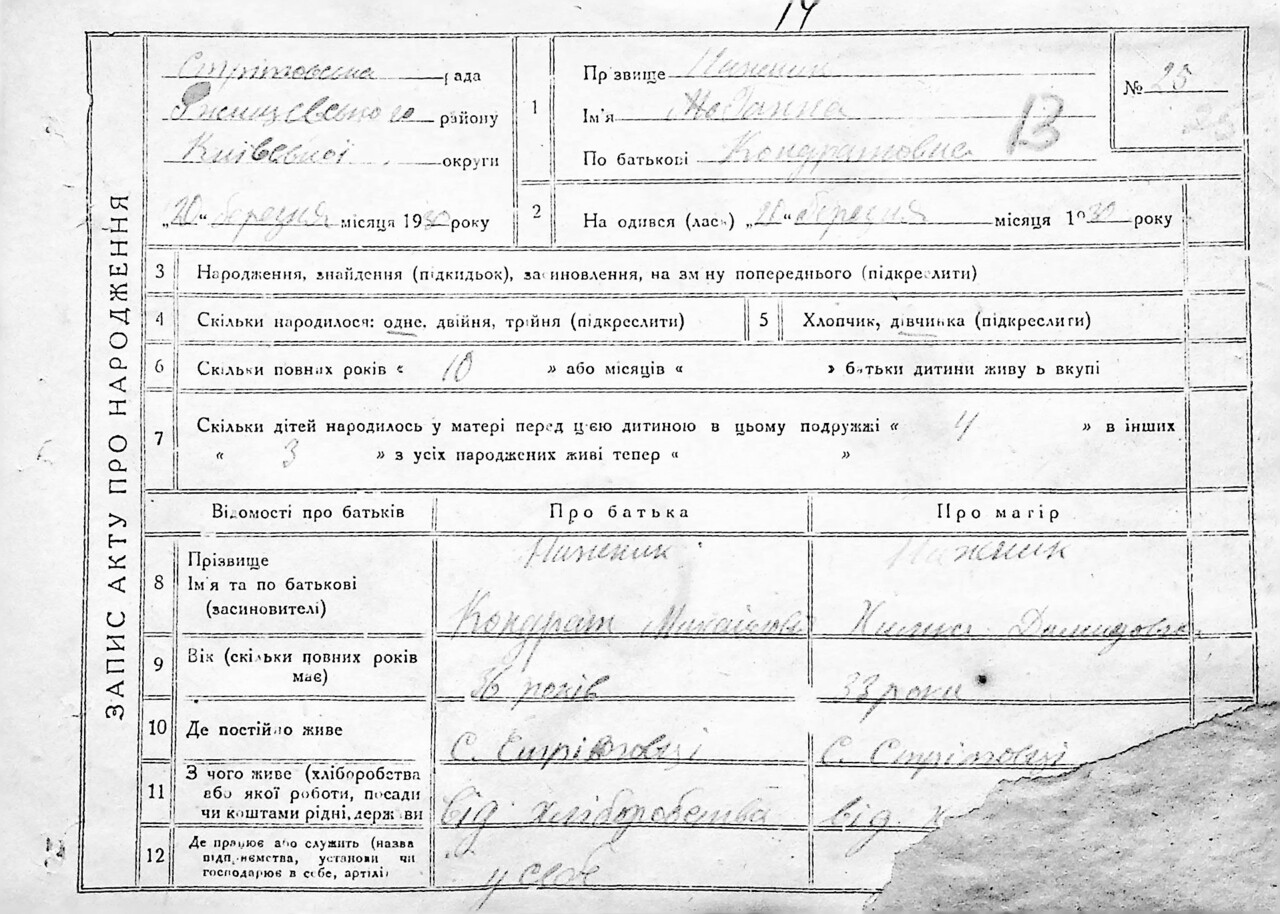 14
ЗАПИС АКТУ ПРО НАРОДЖЕННЯ
Стрітовська рада
Ржищевського району
Київської округи
„20“ березня місяця 1930 року
1
Прізвище Ниженик
Ім'я
По батькові Кондратовна
13
№ 25
25
2
На одився (лась) „20“ березня місяця 1930 року
3 Народження, знайдення (підкидьок), засиновлення, на зміну попереднього (підкреслити)
4 Скільки народилося: одне, двійня, трійня (підкреслити)
5 Хлопчик, дівчинка (підкреслити)
6 Скільки повних років « 10 » або місяців « » батьки дитини живуть вкупі
7 Скільки дітей народилось у матері перед цією дитиною в цьому подружжі « 4 » в інших
« 3 » з усіх народжених живі тепер « »
Відомості про батьків Про батька Про матір
8 Прізвище
Ім'я та по батькові
(засиновителі)
Ниженик
Кондрат Михайлов
Ниженик
Демидовна
9 Вік (скільки повних років
має)
36 років
33 роки
10 Де постійно живе
С. Стрітовці
С. Стрітовці
11 З чого живе (хліборобства
або якої роботи, посади
чи коштами рідні, держави
від хліборобства
від
12 Де працює або служить (назва
підприємства, установи чи
господарює в себе, артілі)
у себе